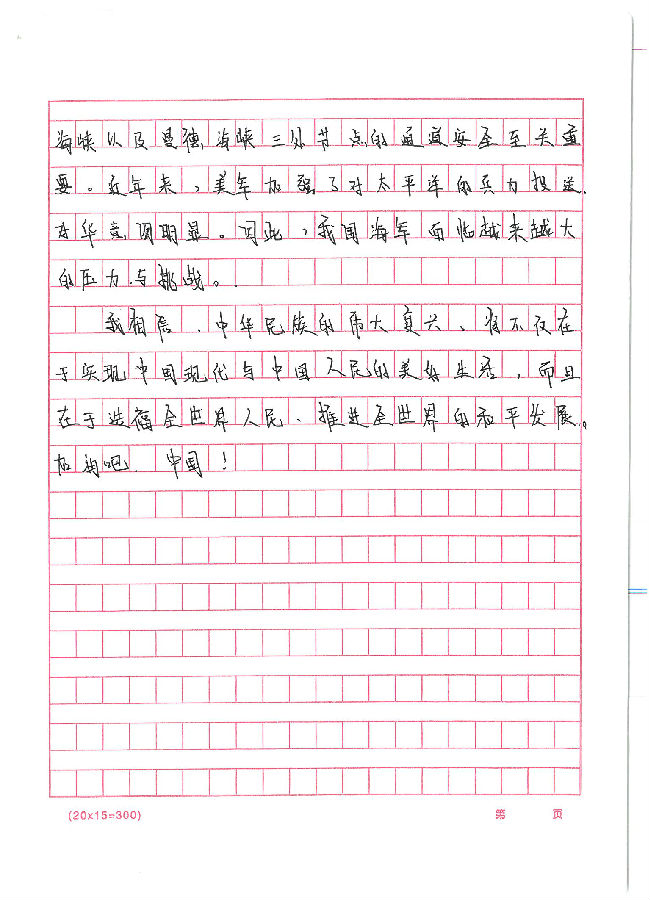 海峡以及曼德海峡三处节点的通道安全至关重
要。近年来，美军加强了对太平洋的兵力投送，
对华意图明显。因此，我国海军面临越来越大
的压力与挑战。
我相信，中华民族的伟大复兴，将不仅在
于实现中国现代与中国人民的美好生活，而且
在于造福全世界人民、推进全世界的和平发展。
加油吧，中国！
(20x15=300)
第 页